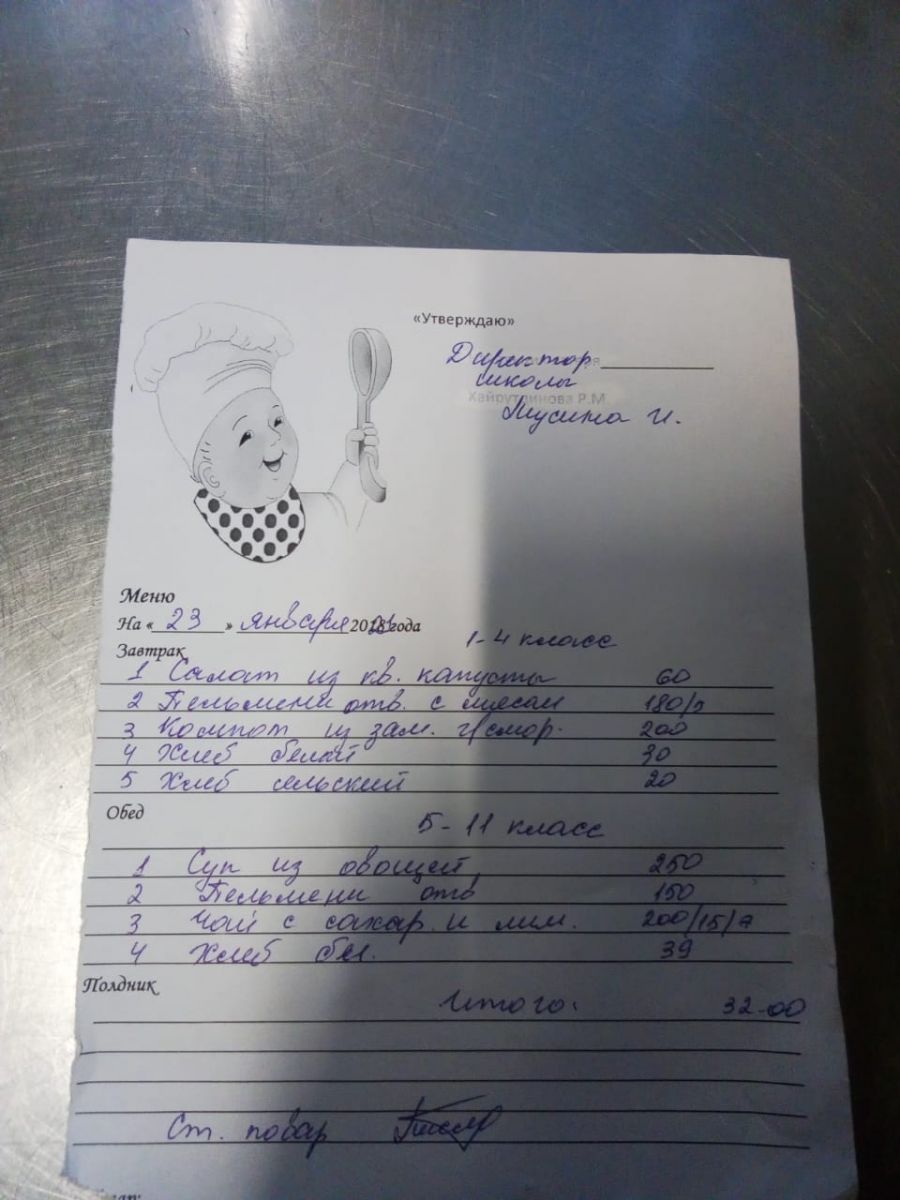 «Утверждаю»
Директор
школы
Хайрутдинова Р.М.
Мусина И.
Меню
На « 23 » января 2018 года
1-4 класс
Завтрак
1 Салат из кв. капусты 60
2 Пельмени отв. с маслом 180/5
3 Компот из зам. смор. 200
4 Хлеб белый 30
5 Хлеб сельский 20
Обед
5-11 класс
1 Суп из овощей 250
2 Пельмени отв 150
3 Чай с сахар. и лим. 200/15/7
4 Хлеб бел. 39
Полдник
Итого: 32-00
Ст. повар